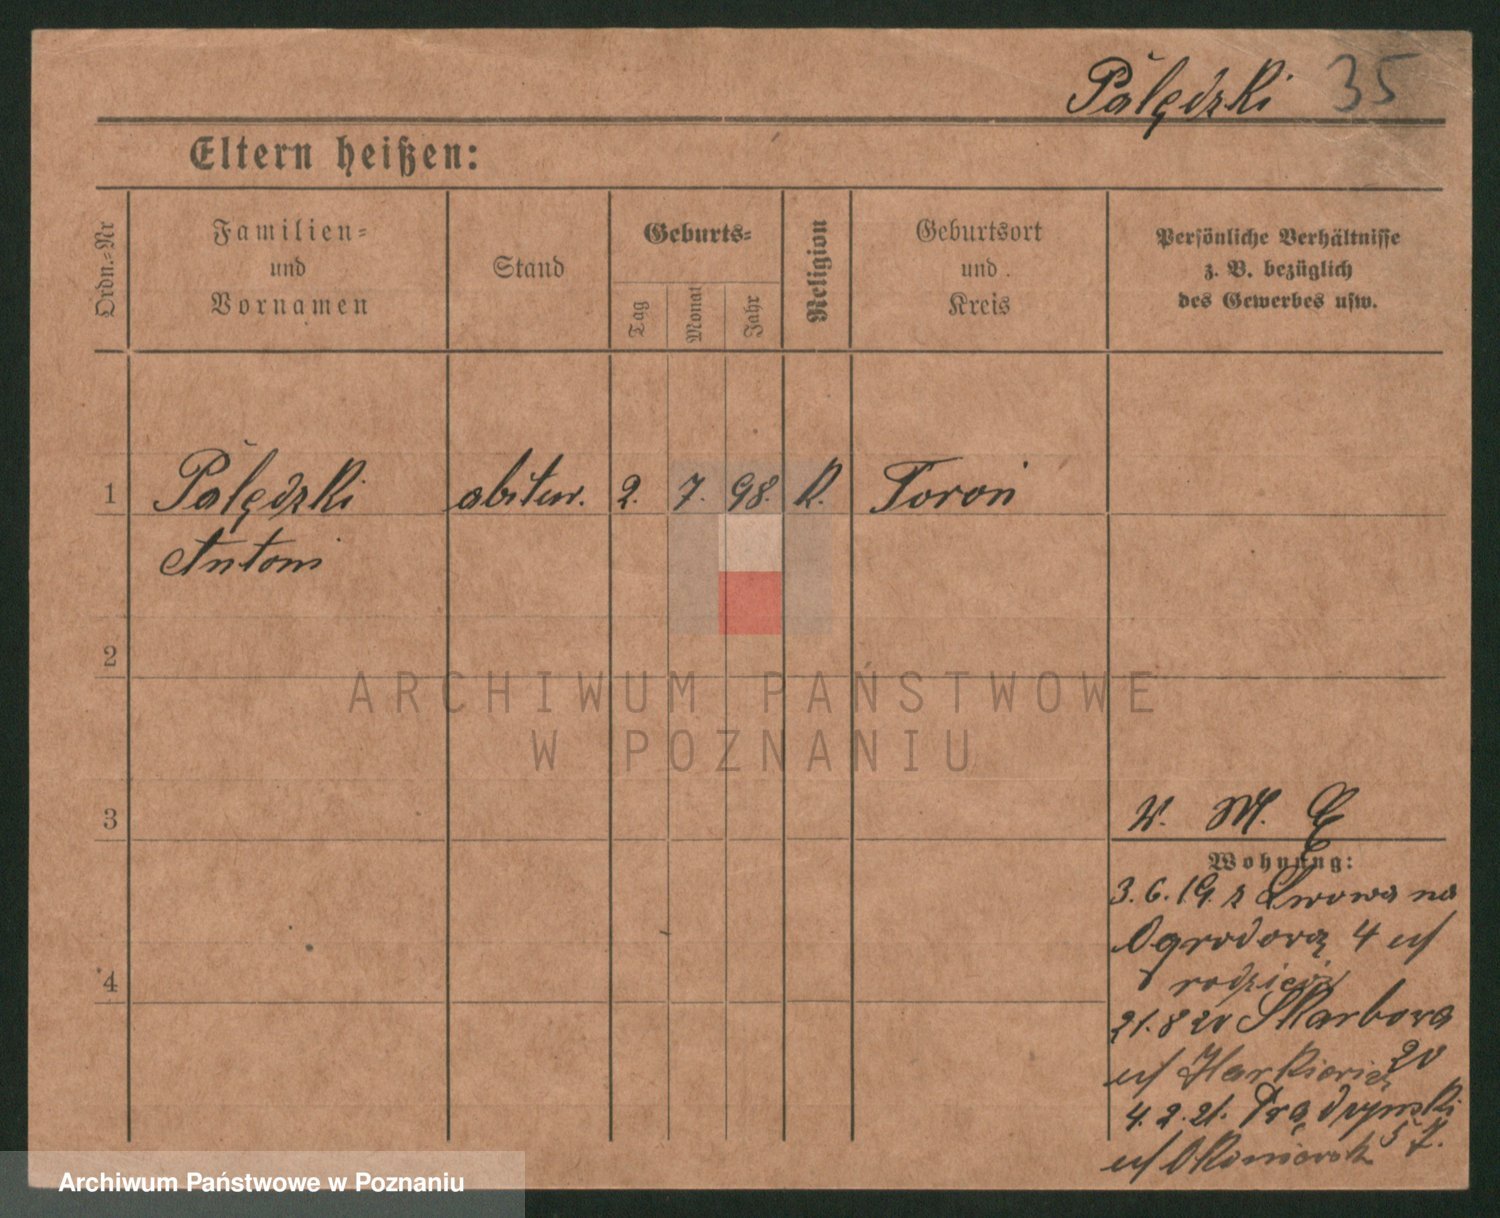 Pałędzki 35
Eltern heißen:
Ordn.-Nr
Familien-
und
Vornamen
Stand
Geburts-
Tag
Monat
Jahr
Religion
Geburtsort
und
Kreis
Persönliche Verhältnisse
z. B. bezüglich
des Gewerbes usw.
1 Pałędzki abitur. 2. 7. 98. K. Toroń
Antoni
2
ARCHIWUM PAŃSTWOWE
W POZNANIU
3
W. M.
Wohnung:
3.6.19. z Lwowa na
Ogrodową 4 u/
rodziców
4
21.8 20 Skarbowa
20
u/
4.2.21. Prądzyński
5 I.
u/
Archiwum Państwowe w Poznaniu